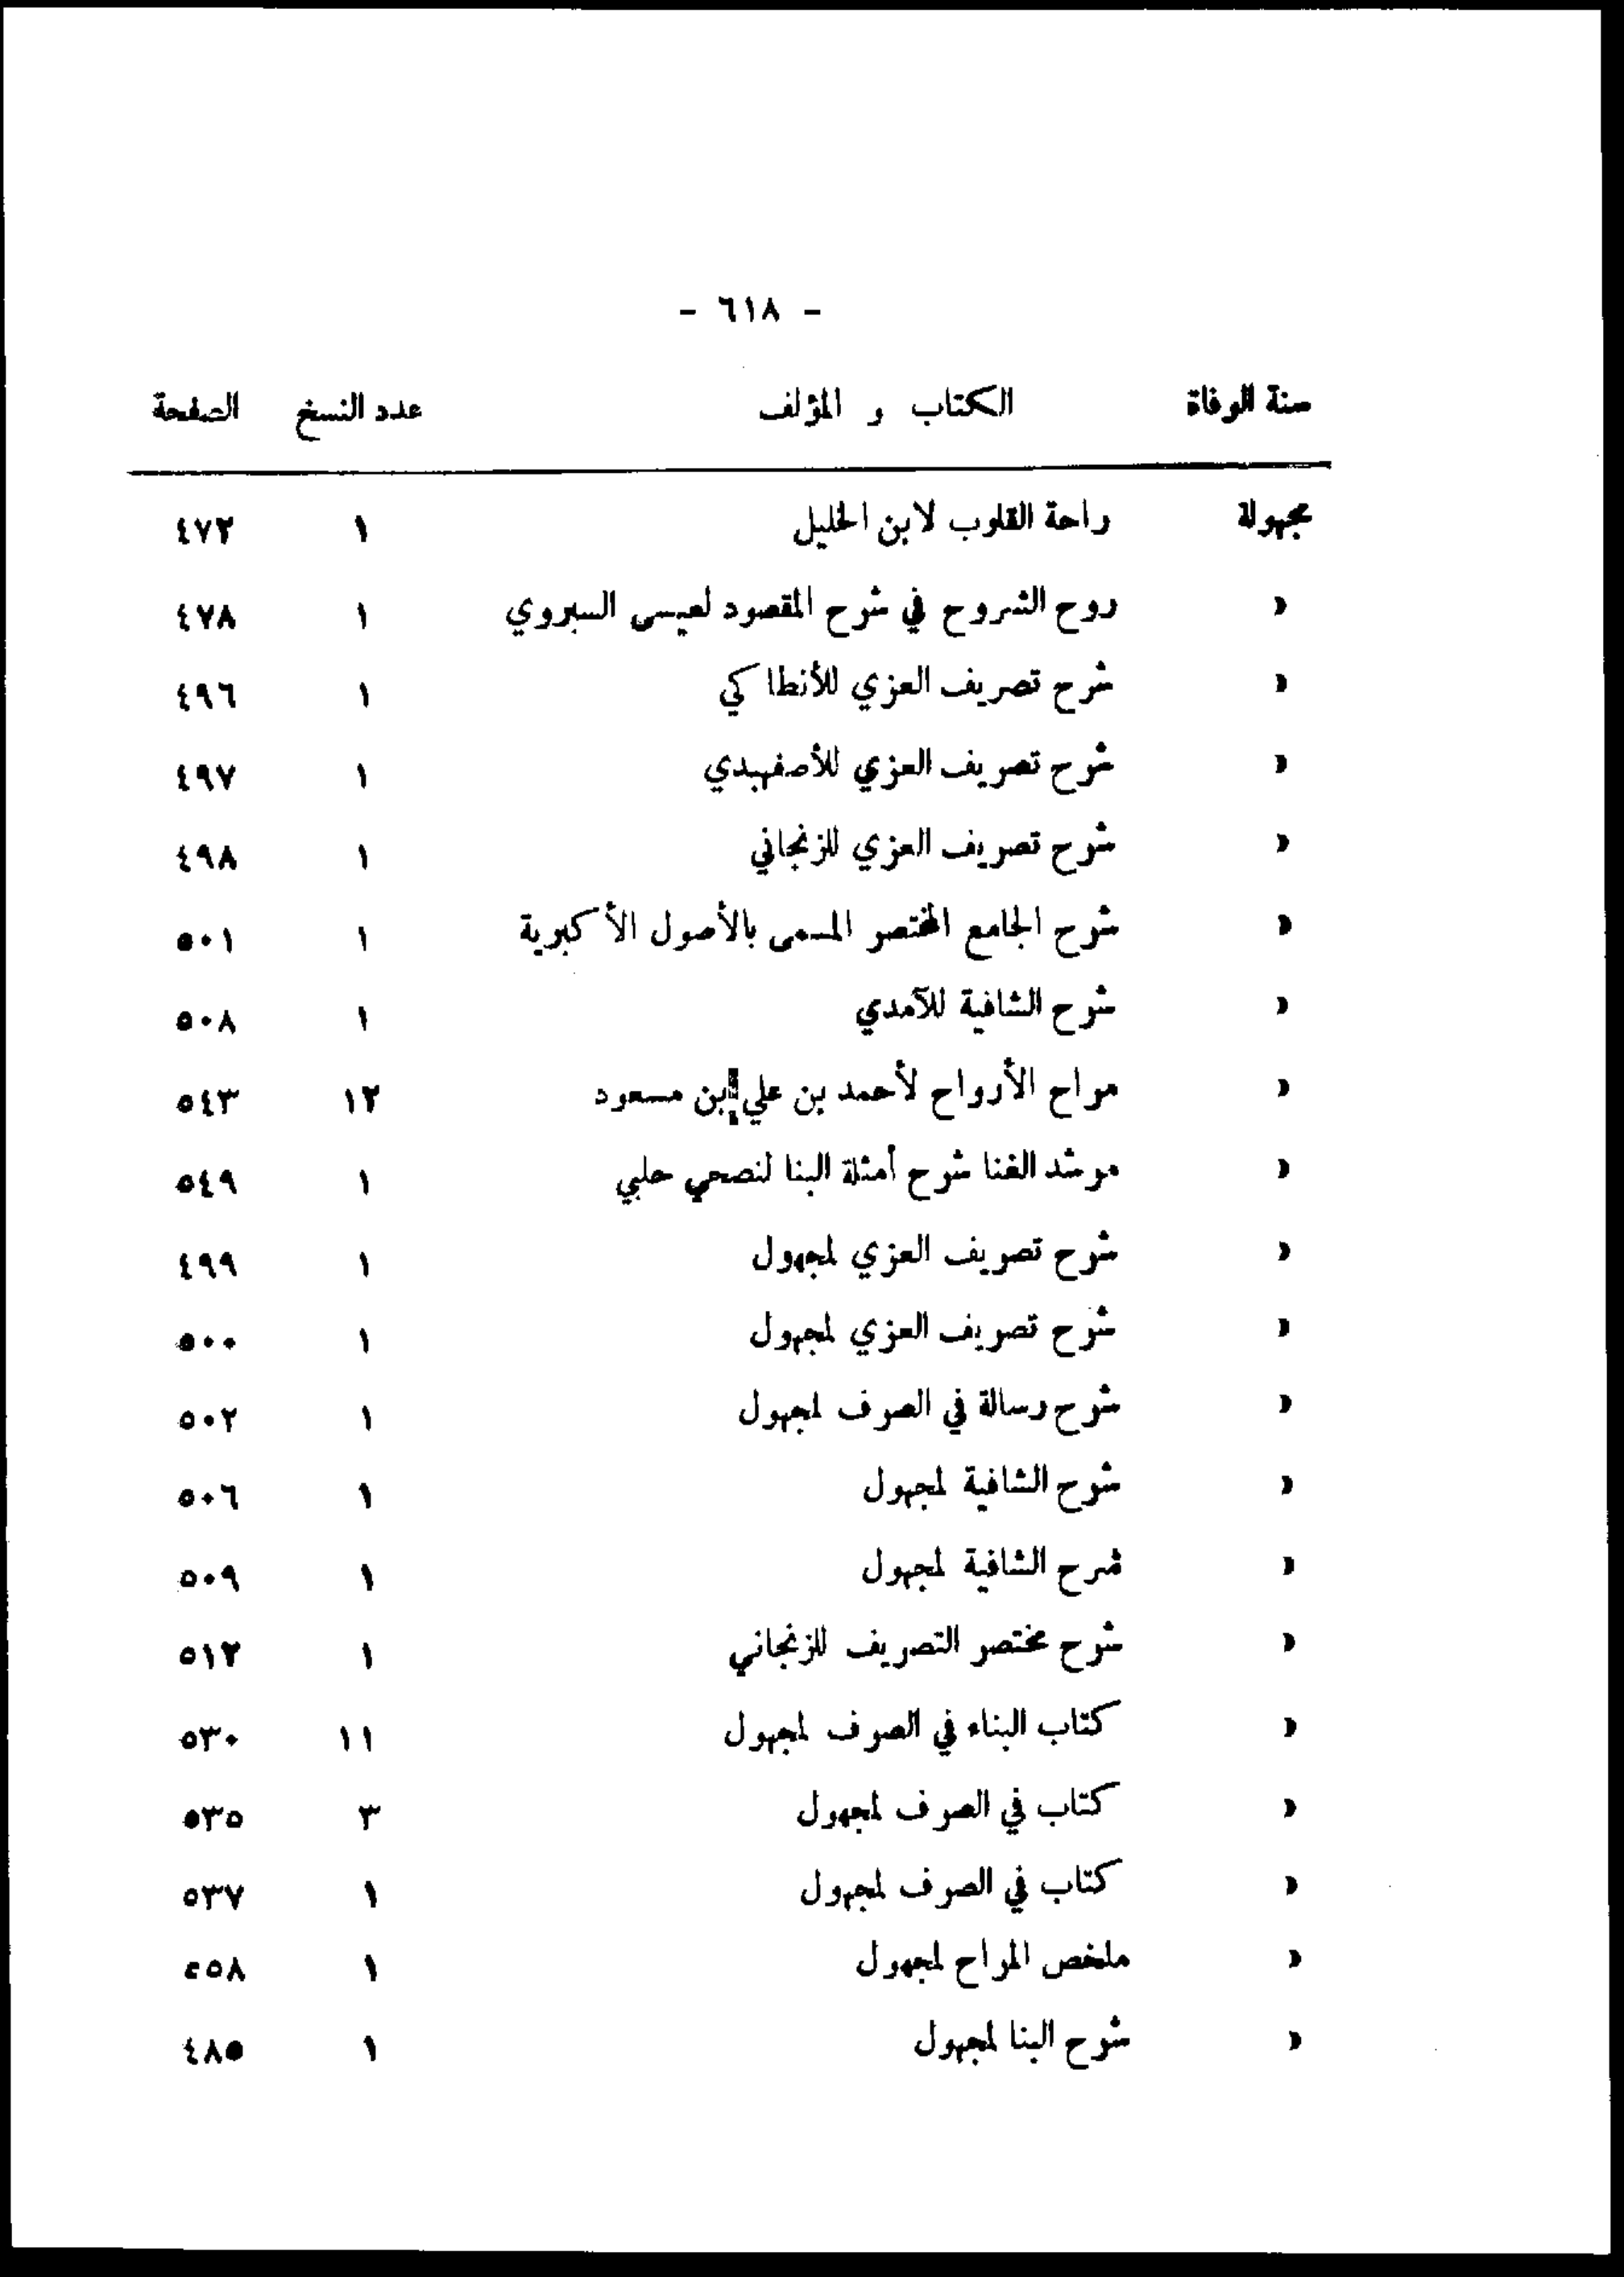 - ٦١٨ -
سنة الوفاة الكتاب و المؤلف عدد النسخ الصفحة
مجهولة راحة القلوب لابن الخليل ١ ٤٧٢
» روح الشروح في شرح المقصود لعيسى السيروي ١ ٤٧٨
» شرح تصريف العزي للأنطاكي ١ ٤٩٦
» شرح تصريف العزي للأصفهبدي ١ ٤٩٧
» شرح تصريف العزي للزنجاني ١ ٤٩٨
» شرح الجامع المختصر المسمى بالأصول الأكبرية ١ ٥٠١
» شرح الشافية للآمدي ١ ٥٠٨
» مراح الأرواح لأحمد بن علي بن مسعود ١٢ ٥٤٣
» مرشد الغنا شرح أمثلة البنا لنصحي حلبي ١ ٥٤٩
» شرح تصريف العزي لمجهول ١ ٤٩٩
» شرح تصريف العزي لمجهول ١ ٥٠٠
» شرح رسالة في الصرف لمجهول ١ ٥٠٢
» شرح الشافية لمجهول ١ ٥٠٦
» شرح الشافية لمجهول ١ ٥٠٩
» شرح مختصر التصريف للزنجاني ١ ٥١٢
» كتاب البناء في الصرف لمجهول ١١ ٥٣٠
» كتاب في الصرف لمجهول ٣ ٥٣٥
» كتاب في الصرف لمجهول ١ ٥٣٧
» ملخص المراح لمجهول ١ ٥٥٨
» شرح البنا لمجهول ١ ٤٨٥